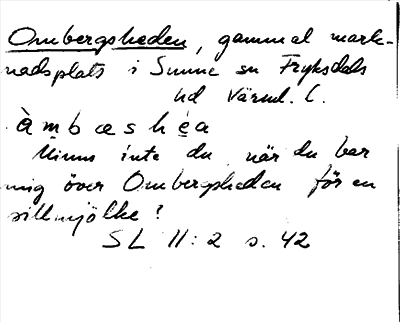 Ombergsheden, gammal mark-
nadsplats i Sunne sn Fryksdals
hd Värml. l.
à m b œ s h é a
Minns inte du, när du bar
mig över Ombergsheden för en
sillmjölke?
SL 11:2 s. 42